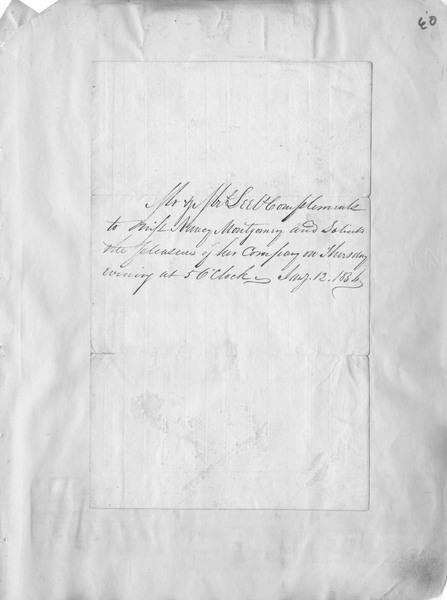 Mr & Mrs Lee's Complements
to Miss Nancy Montgomery and Solicits
the pleasures of her Company on Thursday
evening at 5 O'Clock Jany. 12. 
60